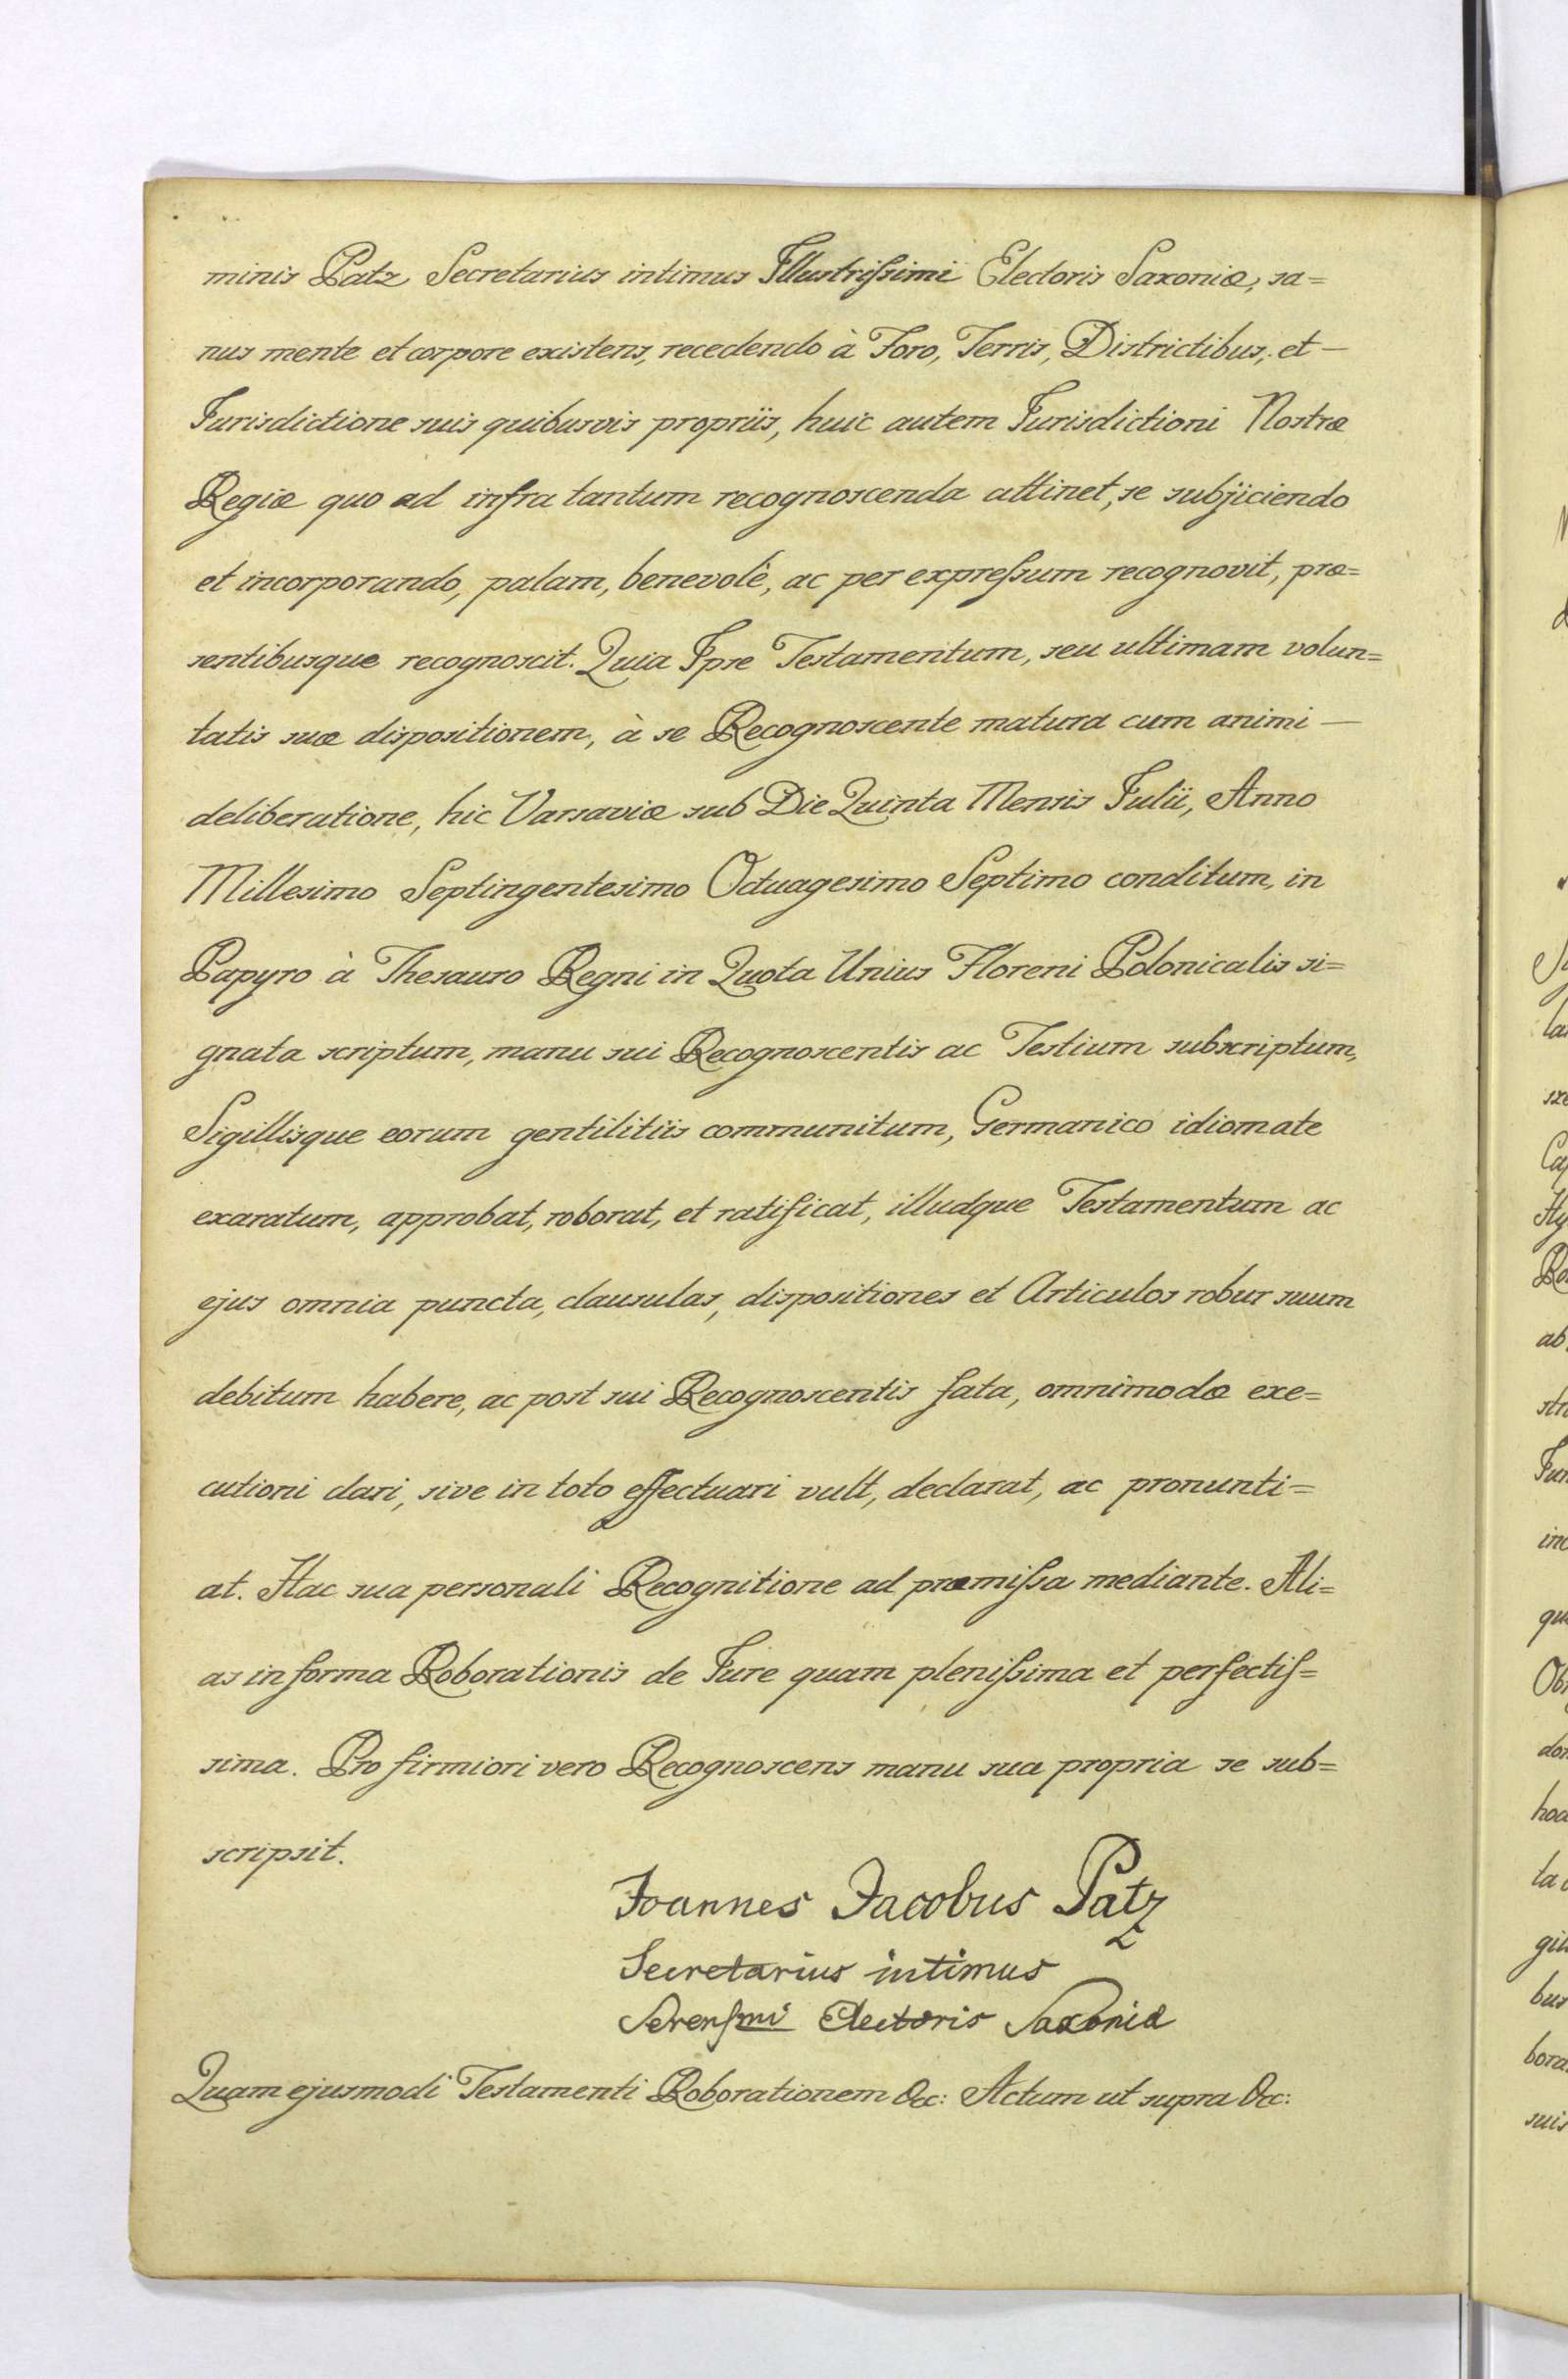 minis Patz Secretarius intimus Illustrissimi Electoris Saxoniæ, sa=
nus mente et corpore existens, recedendo à Foro, Terris, Districtibus, et —
Jurisdictione suis quibusvis propriis, huic autem Jurisdictioni Nostræ
Regiæ quo ad infra tantum recognoscenda attinet, se subjiciendo
et incorporando, palam, benevolè, ac per expressum recognovit, præ=
sentibusque recognoscit. Quia Ipse Testamentum, seu ultimam volun=
tatis suæ dispositionem, à se Recognoscente matura cum animi —
deliberatione, hic Varsaviæ sub Die Quinta Mensis Julii, Anno
Millesimo Septingentesimo Octuagesimo Septimo conditum, in
Papyro à Thesauro Regni in Quota Unius Floreni Polonicalis si=
gnata scriptum, manu sui Recognoscentis ac Testium subscriptum,
Sigillisque eorum gentilitiis communitum, Germanico idiomate
exaratum, approbat, roborat, et ratificat, illudque Testamentum ac
ejus omnia puncta, clausulas, dispositiones et Articulos robur suum
debitum habere, ac post sui Recognoscentis fata, omnimodæ exe=
cutioni dari, sive in toto effectuari vult, declarat, ac pronunti=
at. Hac sua personali Recognitione ad præmissa mediante. Ali=
as in forma Roborationis de Jure quam plenissima et perfectis=
sima. Pro firmiori vero Recognoscens manu sua propria se sub=
scripsit.
Joannes Jacobus Patz
Secretarius intimus
Serenssmi Electoris Saxoniæ
Quam ejusmodi Testamenti Roborationem &c: Actum ut supra &c: